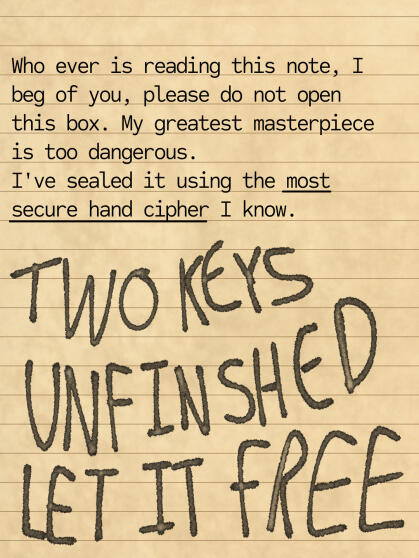 Who ever is reading this note, I
beg of you, please do not open
this box. My greatest masterpiece
is too dangerous.
I've sealed it using the most
secure hand cipher I know.
TWO KEYS
UNFINSHED
LET IT FREE